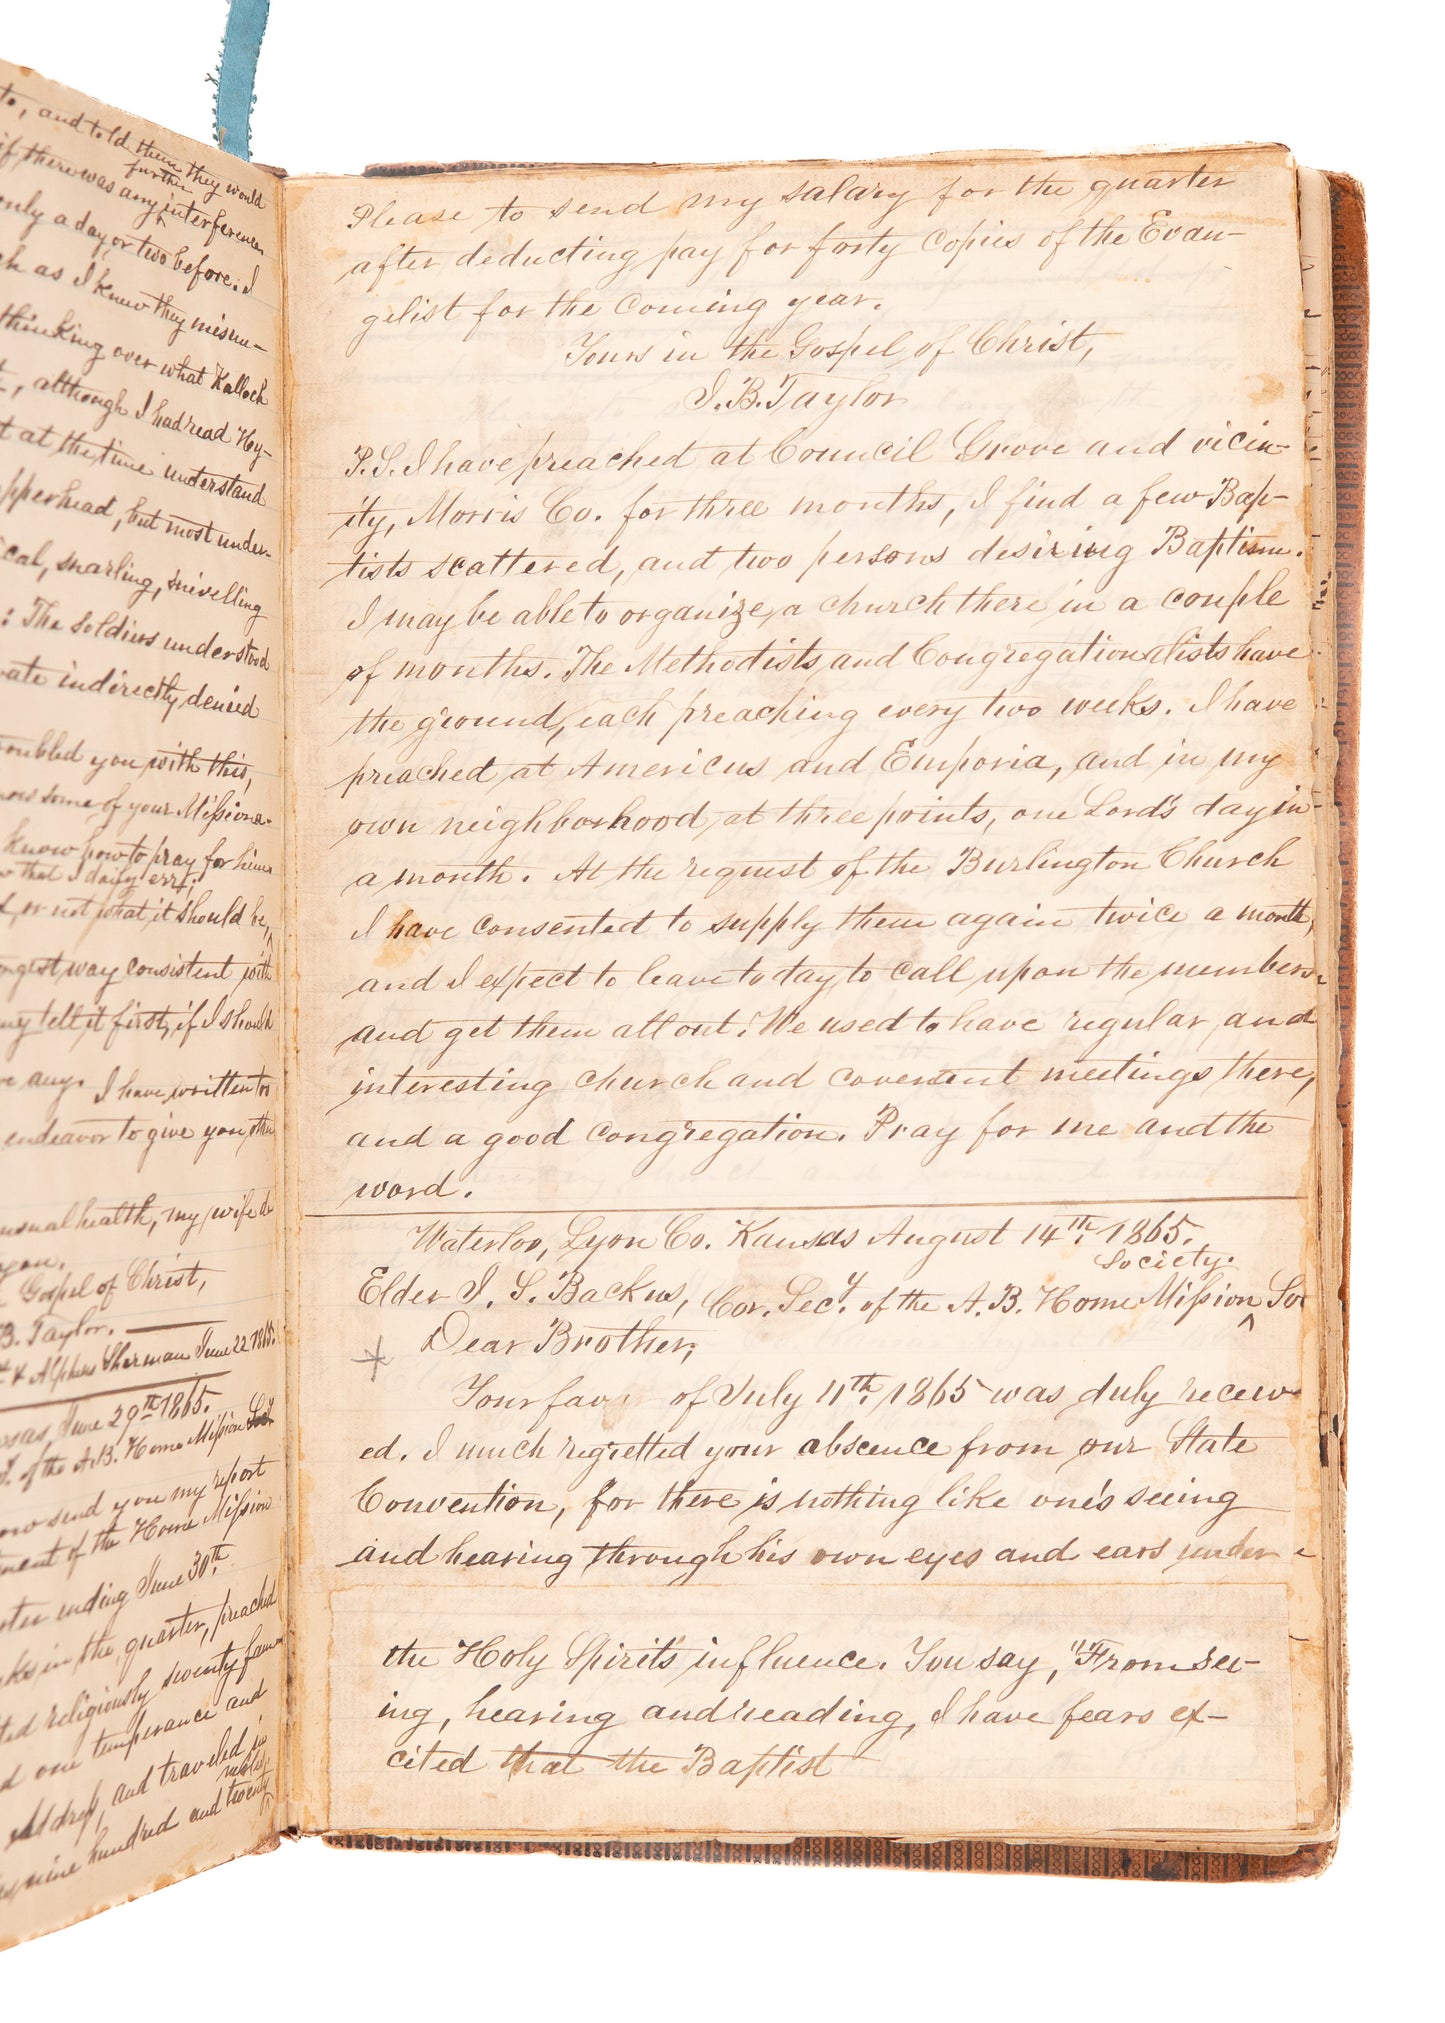 to, and told them they would
if there was any further interference
only a day or two before. I
as I knew they misun-
thinking over what Kalloch
, although I had read Hy-
t at the time understand
pperhead, but most under-
cal, snarling, snivelling
: The soldiers understood
vate indirectly denied
oubled you with this,
some of your Missiona-
know how to pray for him
that I daily err.
or not what it should be,
ongest way consistent with
tell it first, if I should
any. I have written to
endeavor to give you the
usual health, my wife
you.
Gospel of Christ,
B. Taylor.
& Alpheus Sherman June 22 1865.
sas, June 29th 1865.
of the A.B. Home Mission
now send you my report
ment of the Home Mission
ter ending June 30th
ks in the quarter, preached
ted religiously seventy fam
d one temperance and
and traveled in
nine hundred and twenty
Please to send my salary for the quarter
after deducting pay for forty copies of the Evan-
gelist for the coming year.
Yours in the Gospel of Christ,
I. B. Taylor
P.S. I have preached at Council Grove and vicin-
ity, Morris Co. for three months, I find a few Bap-
tists scattered, and two persons desiring Baptism.
I may be able to organize a church there in a couple
of months. The Methodists and Congregationalists have
the ground, each preaching every two weeks. I have
preached at Americus and Emporia, and in my
own neighborhood at three points, one Lord's day in
a month. At the request of the Burlington Church
I have consented to supply them again twice a month,
and I expect to leave to day to call upon the members
and get them all out. We used to have regular and
interesting church and covenant meetings there,
and a good congregation. Pray for me and the
word.
Waterloo, Lyon Co. Kansas August 14th 1865.
Society.
Elder I. S. Backus, Cor. Secy. of the A. B. Home Mission So
Dear Brother;
Your favor of July 11th, 1865 was duly receiv-
ed. I much regretted your absence from our State
Convention, for there is nothing like one's seeing
and hearing through his own eyes and ears under
the Holy Spirit's influence. You say, "From see-
ing, hearing and reading, I have fears ex-
cited that the Baptist